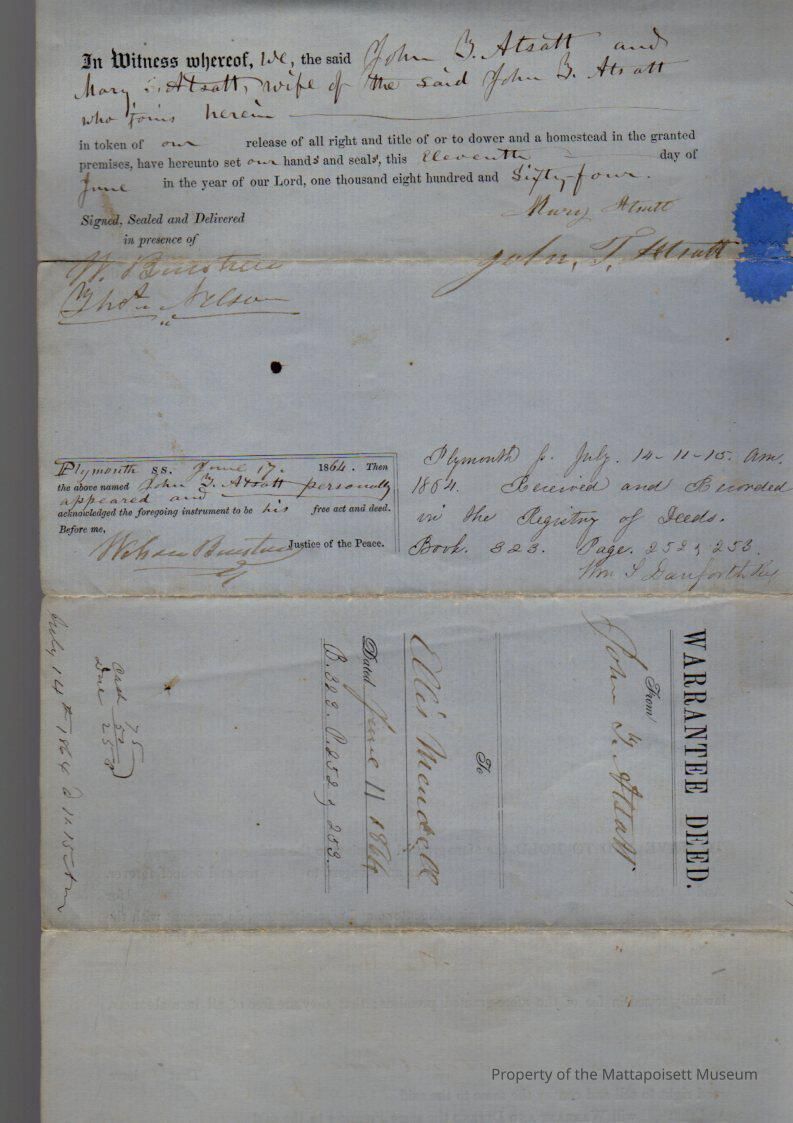 In Witness whereof, We, the said John T. Atsatt and
Mary Atsatt, wife of the said John T. Atsatt
who joins herein
in token of our release of all right and title of or to dower and a homestead in the granted
premises, have hereunto set our hands and seals, this Eleventh day of
June in the year of our Lord, one thousand eight hundred and Sixty-four.
Signed, Sealed and Delivered
in presence of
Mary Atsatt
John. T. Atsatt
W.
Thos. Nelson
Plymouth ss. June 17. 1864. Then
the above named John T. Atsatt personally
appeared and
acknowledged the foregoing instrument to be his free act and deed.
Before me,
Justice of the Peace.
Plymouth ss. July. 14-11-15. Am.
1864. Received and Recorded
in the Registry of Deeds.
Book. 323. Page. 252 & 253.
Wm S Danforth Reg
WARRANTEE DEED.
From
John T. Atsatt
To
Ellis Mendell
Dated June 11 1864
B. 323. P. 252 & 253.
75
Due 25
July 14th 1864 @ 11.15 Am
Property of the Mattapoisett Museum